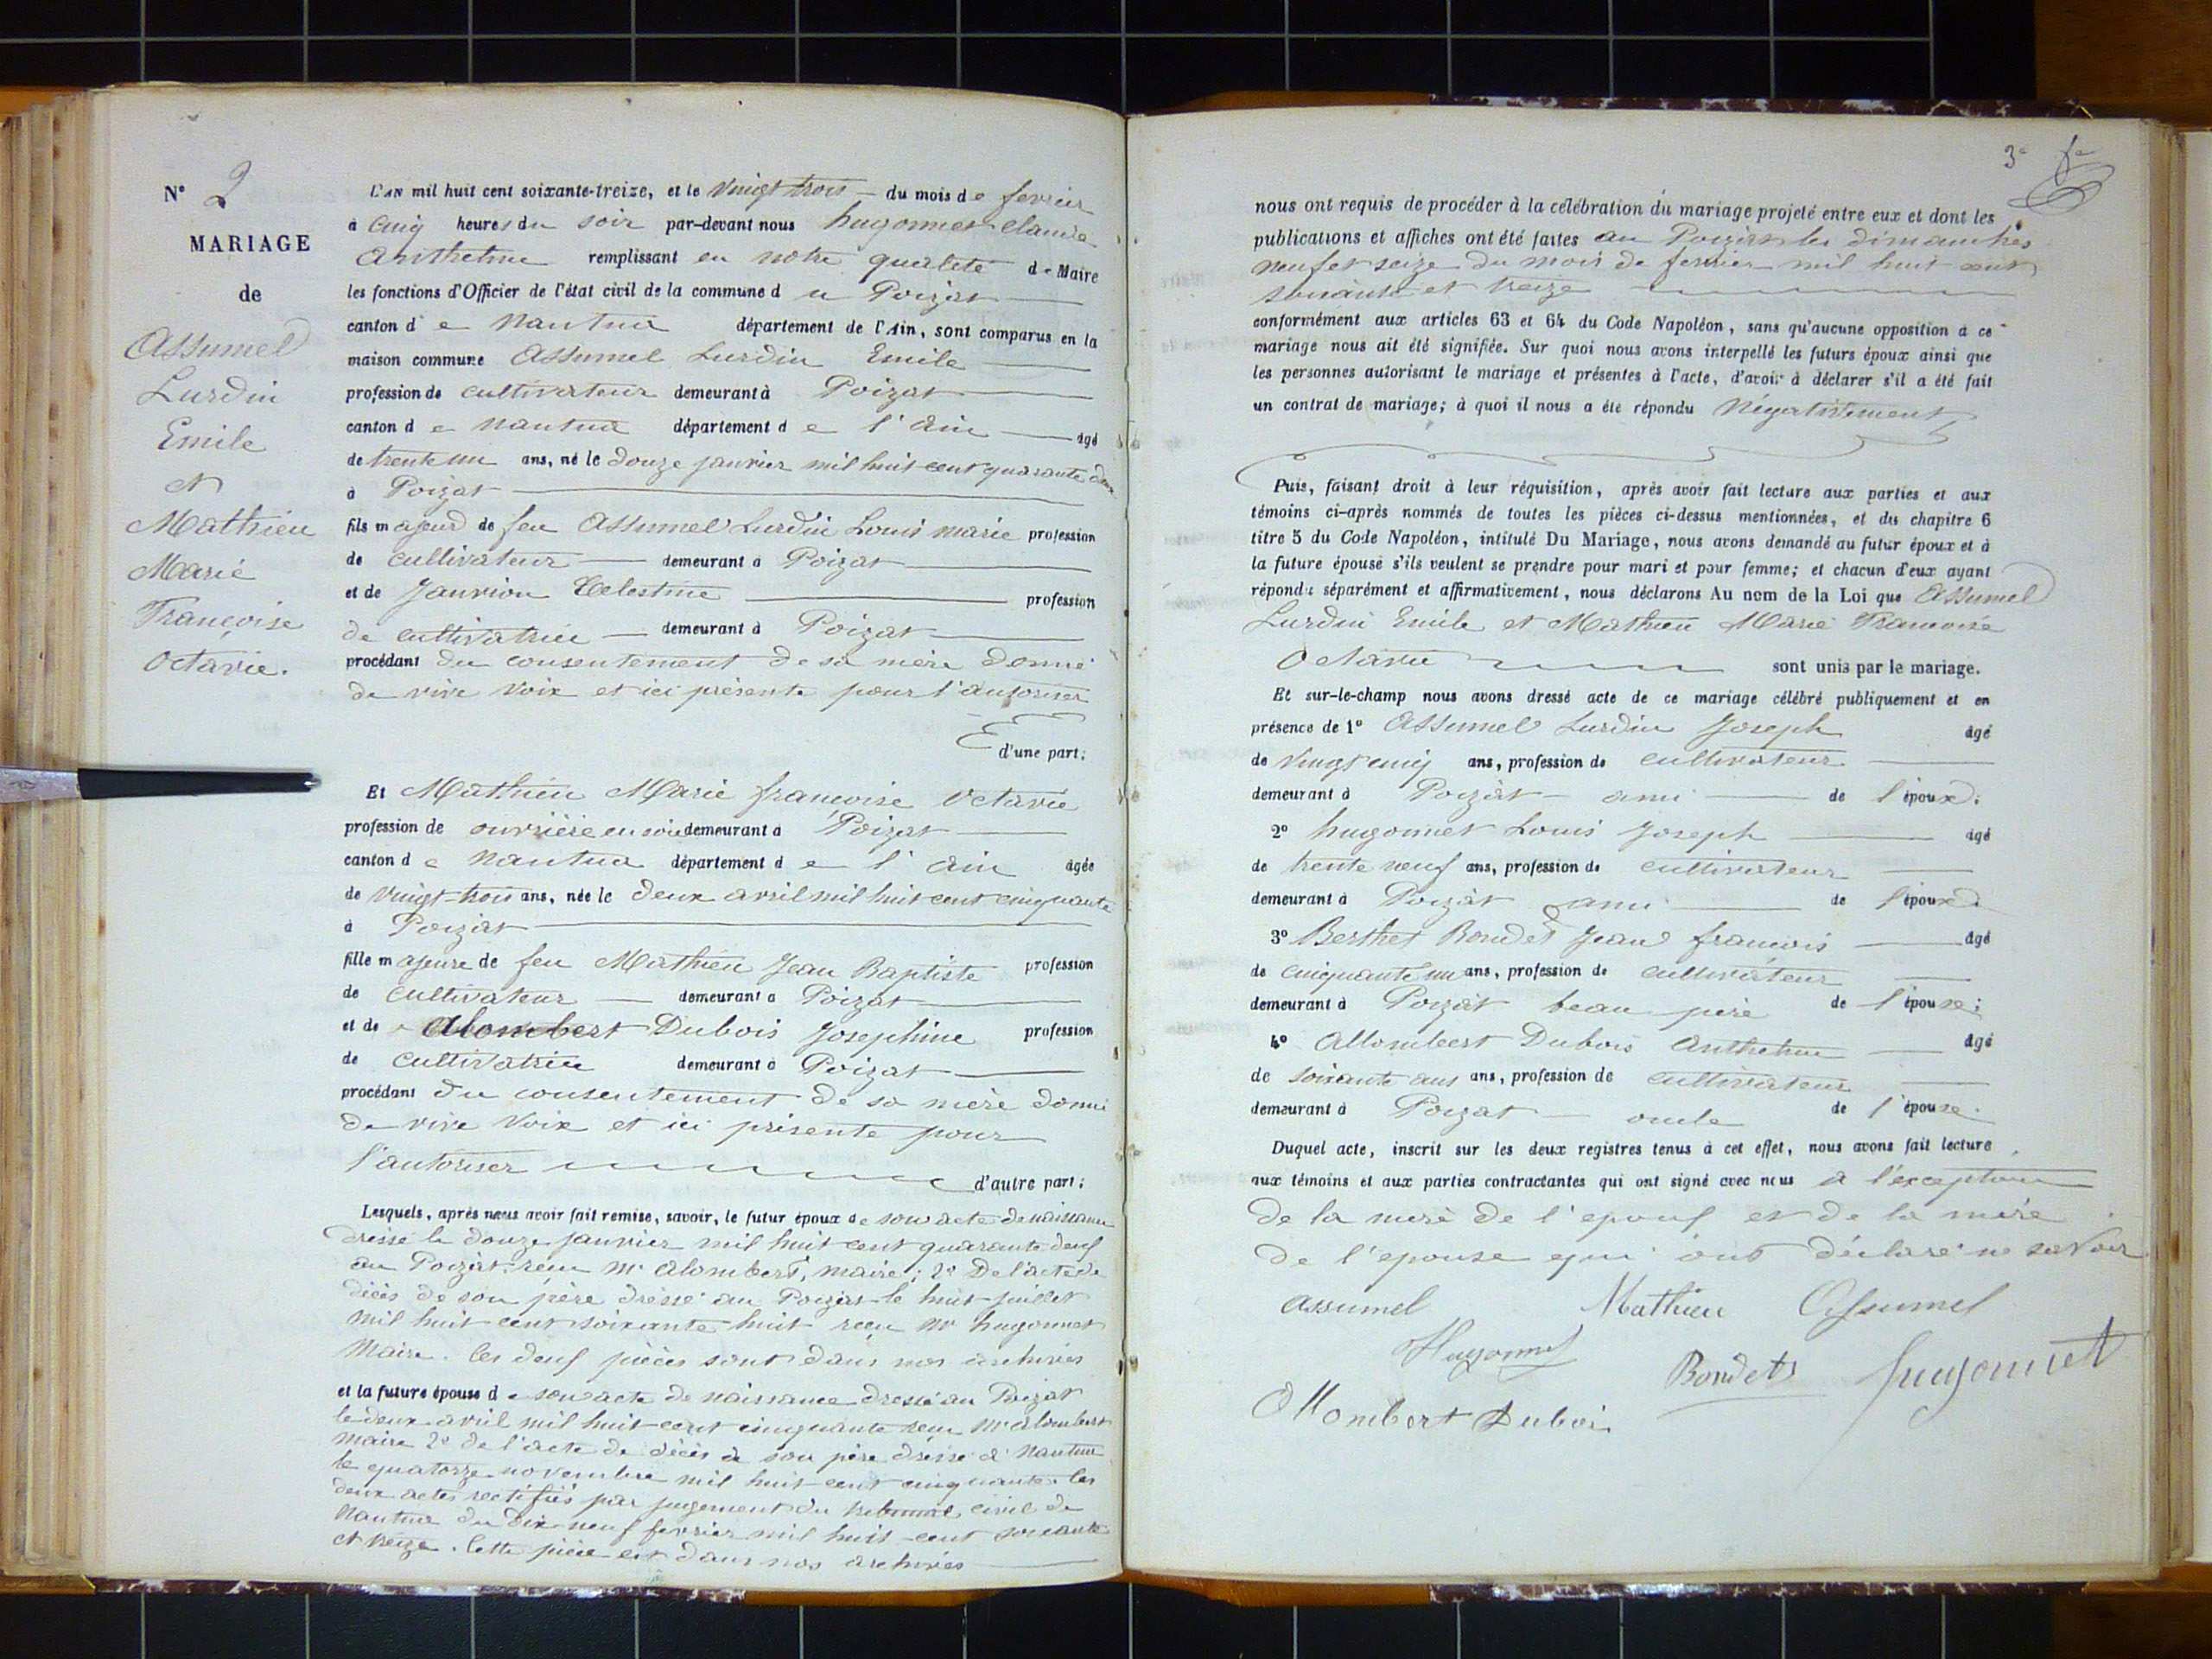 N° 2
MARIAGE
de
Assumel
Lurdin
Emile
et
Mathieu
Marie
Françoise
Octavie.
L'AN mil huit cent soixante-treize, et le vingt trois du mois de fevrier
à cinq heures du soir par-devant nous hugonnet claude
Anthelme remplissant en notre qualité de Maire
les fonctions d'Officier de l'état civil de la commune du Poizat
canton de Nantua département de l'Ain, sont comparus en la
maison commune Assumel Lurdin Emile
profession de cultivateur demeurant à Poizat
canton de Nantua département de l'Ain âgé
de trente un ans, né le douze janvier mil huit cent quarante deux
à Poizat
fils majeur de feu Assumel Lurdin Louis marie profession
de cultivateur demeurant à Poizat
et de Janvion Celestine profession
de cultivatrice demeurant à Poizat
procédant du consentement de sa mère donné
de vive voix et ici présente pour l'autoriser
d'une part;
Et Mathieu Marie françoise Octavie
profession de ouvrière en soie demeurant à Poizat
canton de Nantua département de l'Ain âgée
de vingt-trois ans, née le deux avril mil huit cent cinquante
à Poizat
fille majeure de feu Mathieu Jean Baptiste profession
de cultivateur demeurant à Poizat
et de Alombert Dubois Josephine profession
de cultivatrice demeurant à Poizat
procédant du consentement de sa mère donné
de vive voix et ici présente pour
l'autoriser
d'autre part;
Lesquels, après nous avoir fait remise, savoir, le futur époux de son acte de naissance
dressé le douze janvier mil huit cent quarante deux
au Poizat reçu Mr Alombert, maire; 2° De l'acte de
décès de son père dressé au Poizat le huit juillet
mil huit cent soixante huit reçu Mr hugonnet
Maire. Ces deux pièces sont dans nos archives
et la future épouse de son acte de naissance dressé au Poizat
le deux avril mil huit cent cinquante reçu Mr Alombert
maire 2° de l'acte de décès de son père dressé à Nantua
le quatorze novembre mil huit cent cinquante. les
deux actes rectifiés par jugement du tribunal civil de
Nantua du dix neuf fevrier mil huit cent soixante
et treize. Cette pièce est dans nos archives
3e
nous ont requis de procéder à la célébration du mariage projeté entre eux et dont les
publications et affiches ont été faites au Poizat les dimanches
neuf et seize du mois de fevrier mil huit cent
soixante et treize
conformément aux articles 63 et 64 du Code Napoléon, sans qu'aucune opposition à ce
mariage nous ait été signifiée. Sur quoi nous avons interpellé les futurs époux ainsi que
les personnes autorisant le mariage et présentes à l'acte, d'avoir à déclarer s'il a été fait
un contrat de mariage; à quoi il nous a été répondu Négativement
Puis, faisant droit à leur réquisition, après avoir fait lecture aux parties et aux
témoins ci-après nommés de toutes les pièces ci-dessus mentionnées, et du chapitre 6
titre 5 du Code Napoléon, intitulé Du Mariage, nous avons demandé au futur époux et à
la future épouse s'ils veulent se prendre pour mari et pour femme; et chacun d'eux ayant
répondu séparément et affirmativement, nous déclarons Au nom de la Loi que Assumel
Lurdin Emile et Mathieu Marie Francoise
Octavie sont unis par le mariage.
Et sur-le-champ nous avons dressé acte de ce mariage célébré publiquement et en
présence de 1° Assumel Lurdin Joseph âgé
de vingt cinq ans, profession de cultivateur
demeurant à Poizat ami de l'époux;
2° hugonnet Louis Joseph âgé
de trente neuf ans, profession de cultivateur
demeurant à Poizat ami de l'époux.
3° Berthet Bondet Jean francois âgé
de cinquante un ans, profession de cultivateur
demeurant à Poizat beau père de l'épouse;
4° Allombert Dubois Anthelme âgé
de soixante ans ans, profession de cultivateur
demeurant à Poizat oncle de l'épouse.
Duquel acte, inscrit sur les deux registres tenus à cet effet, nous avons fait lecture
aux témoins et aux parties contractantes qui ont signé avec nous a l'exception
de la mere de l'epoux et de la mère
de l'epouse qui ont déclaré ne savoir
assumel Mathieu Assumel
Hugonnet
Bondet hugonnet
Allombert Dubois